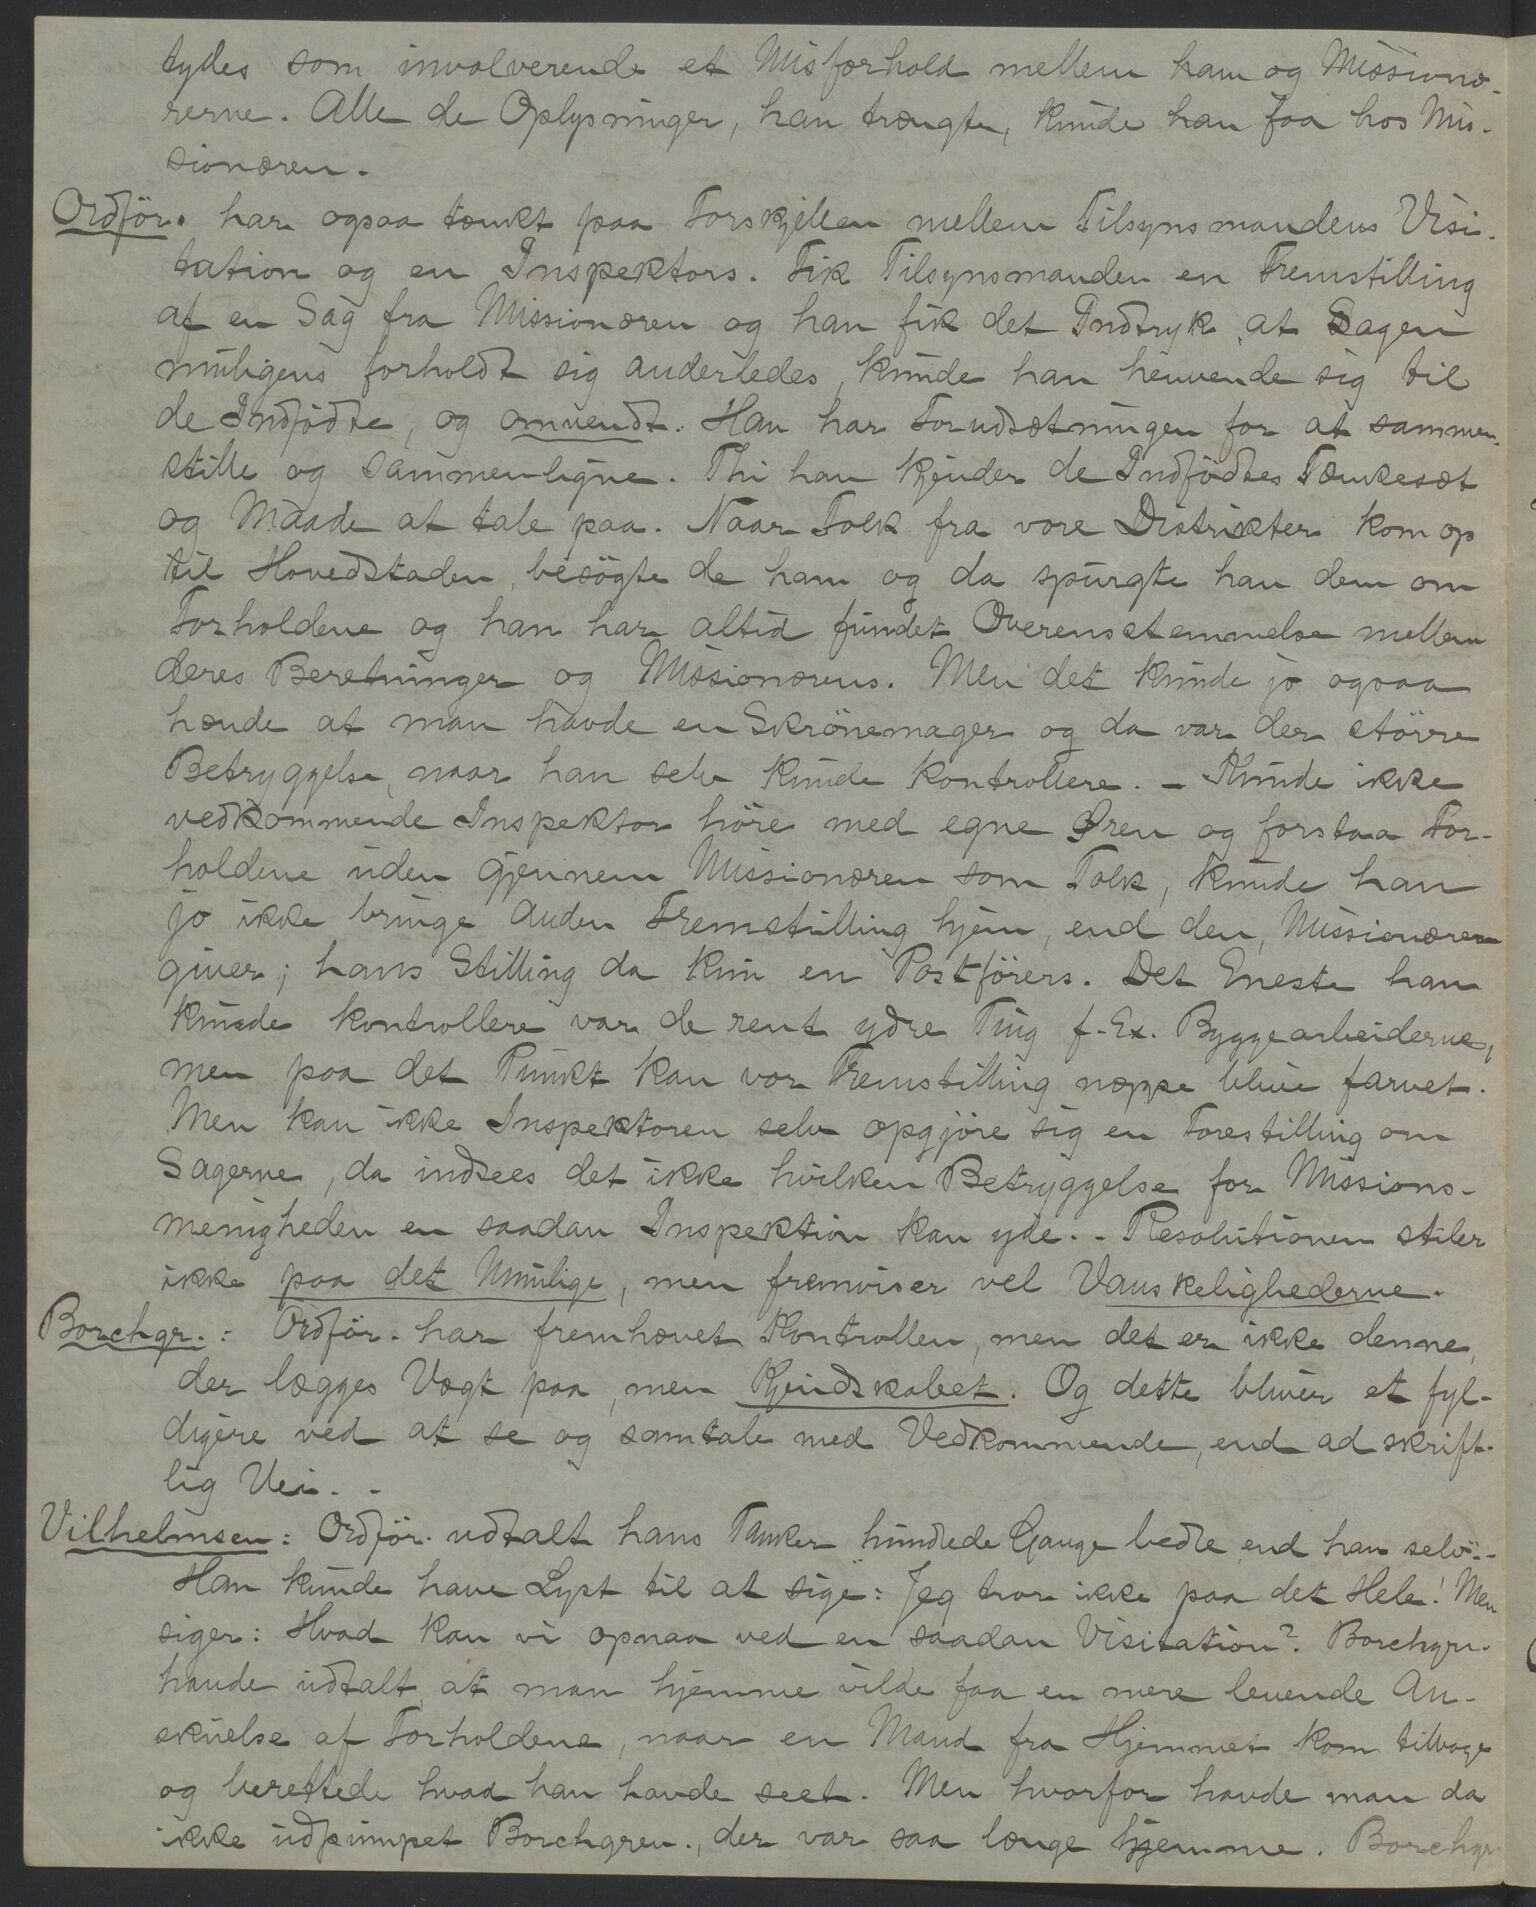 tydes som involverende et Misforhold mellem ham og Missionæ-
rerne. Alle de Oplysninger, han trængte, kunde han faa hos Mis-
sionæren.
Ordför. har ogsaa tænkt paa Forskjellen mellem Tilsynsmandens Visi-
tation og en Inspektors. Fik Tilsynsmanden en Fremstilling
af en Sag fra Missionæren og han fik det Indtryk, at Sagen
muligens forholdt sig anderledes, kunde han henvende sig til
de Indfödte, og omvendt. Han har Forudsætningen for at sammen-
stille og sammenligne. Thi han kjender de Indfödtes Tænkesæt
og Maade at tale paa. Naar Folk fra vore Distrikter kom op
til Hovedstaden, besögte de ham og da spurgte han dem om
Forholdene og han har altid fundet Overensstemmelse mellem
deres Beretninger og Missionærens. Men det kunde jo ogsaa
hænde at man havde en Skrönemager og da var der större
Betryggelse, naar han selv kunde kontrollere. – Kunde ikke
vedkommende Inspektor höre med egne Øren og forstaa For-
holdene uden gjennem Missionæren som Tolk, kunde han
jo ikke bringe anden Fremstilling hjem, end den, Missionæren
giver; hans Stilling da kun en Postförers. Det Eneste han
kunde kontrollere var de rent ydre Ting f. Ex. Byggearbeiderne,
men paa det Punkt kan vor Fremstilling næppe blive farvet.
Men kan ikke Inspektoren selv opgjöre sig en Forestilling om
Sagerne, da indsees det ikke hvilken Betryggelse for Missions-
menigheden en saadan Inspektion kan yde. - Resolutionen stiler
ikke paa det Umulige, men fremviser vel Vanskelighederne.
Borchgr.: Ordför. har fremhævet Kontrollen, men det er ikke denne,
der lægges Vægt paa, men Kjendskabet. Og dette bliver et fyl-
digere ved at se og samtale med Vedkommende, end ad skrift-
lig Vei. -
Vilhelmsen: Ordför. udtalt hans Tanker hundrede Gange bedre end han selv. -
Han kunde have Lyst til at sige: Jeg tror ikke paa det Hele! Men
siger: Hvad kan vi opnaa ved en saadan Visitation? Borchgr.
havde udtalt, at man hjemme vilde faa en mere levende An-
skuelse af Forholdene, naar en Mand fra Hjemmet kom tilbage
og berettede hvad han havde seet. Men hvorfor havde man da
ikke udpumpet Borchgrev., der var saa længe hjemme. Borchgr.